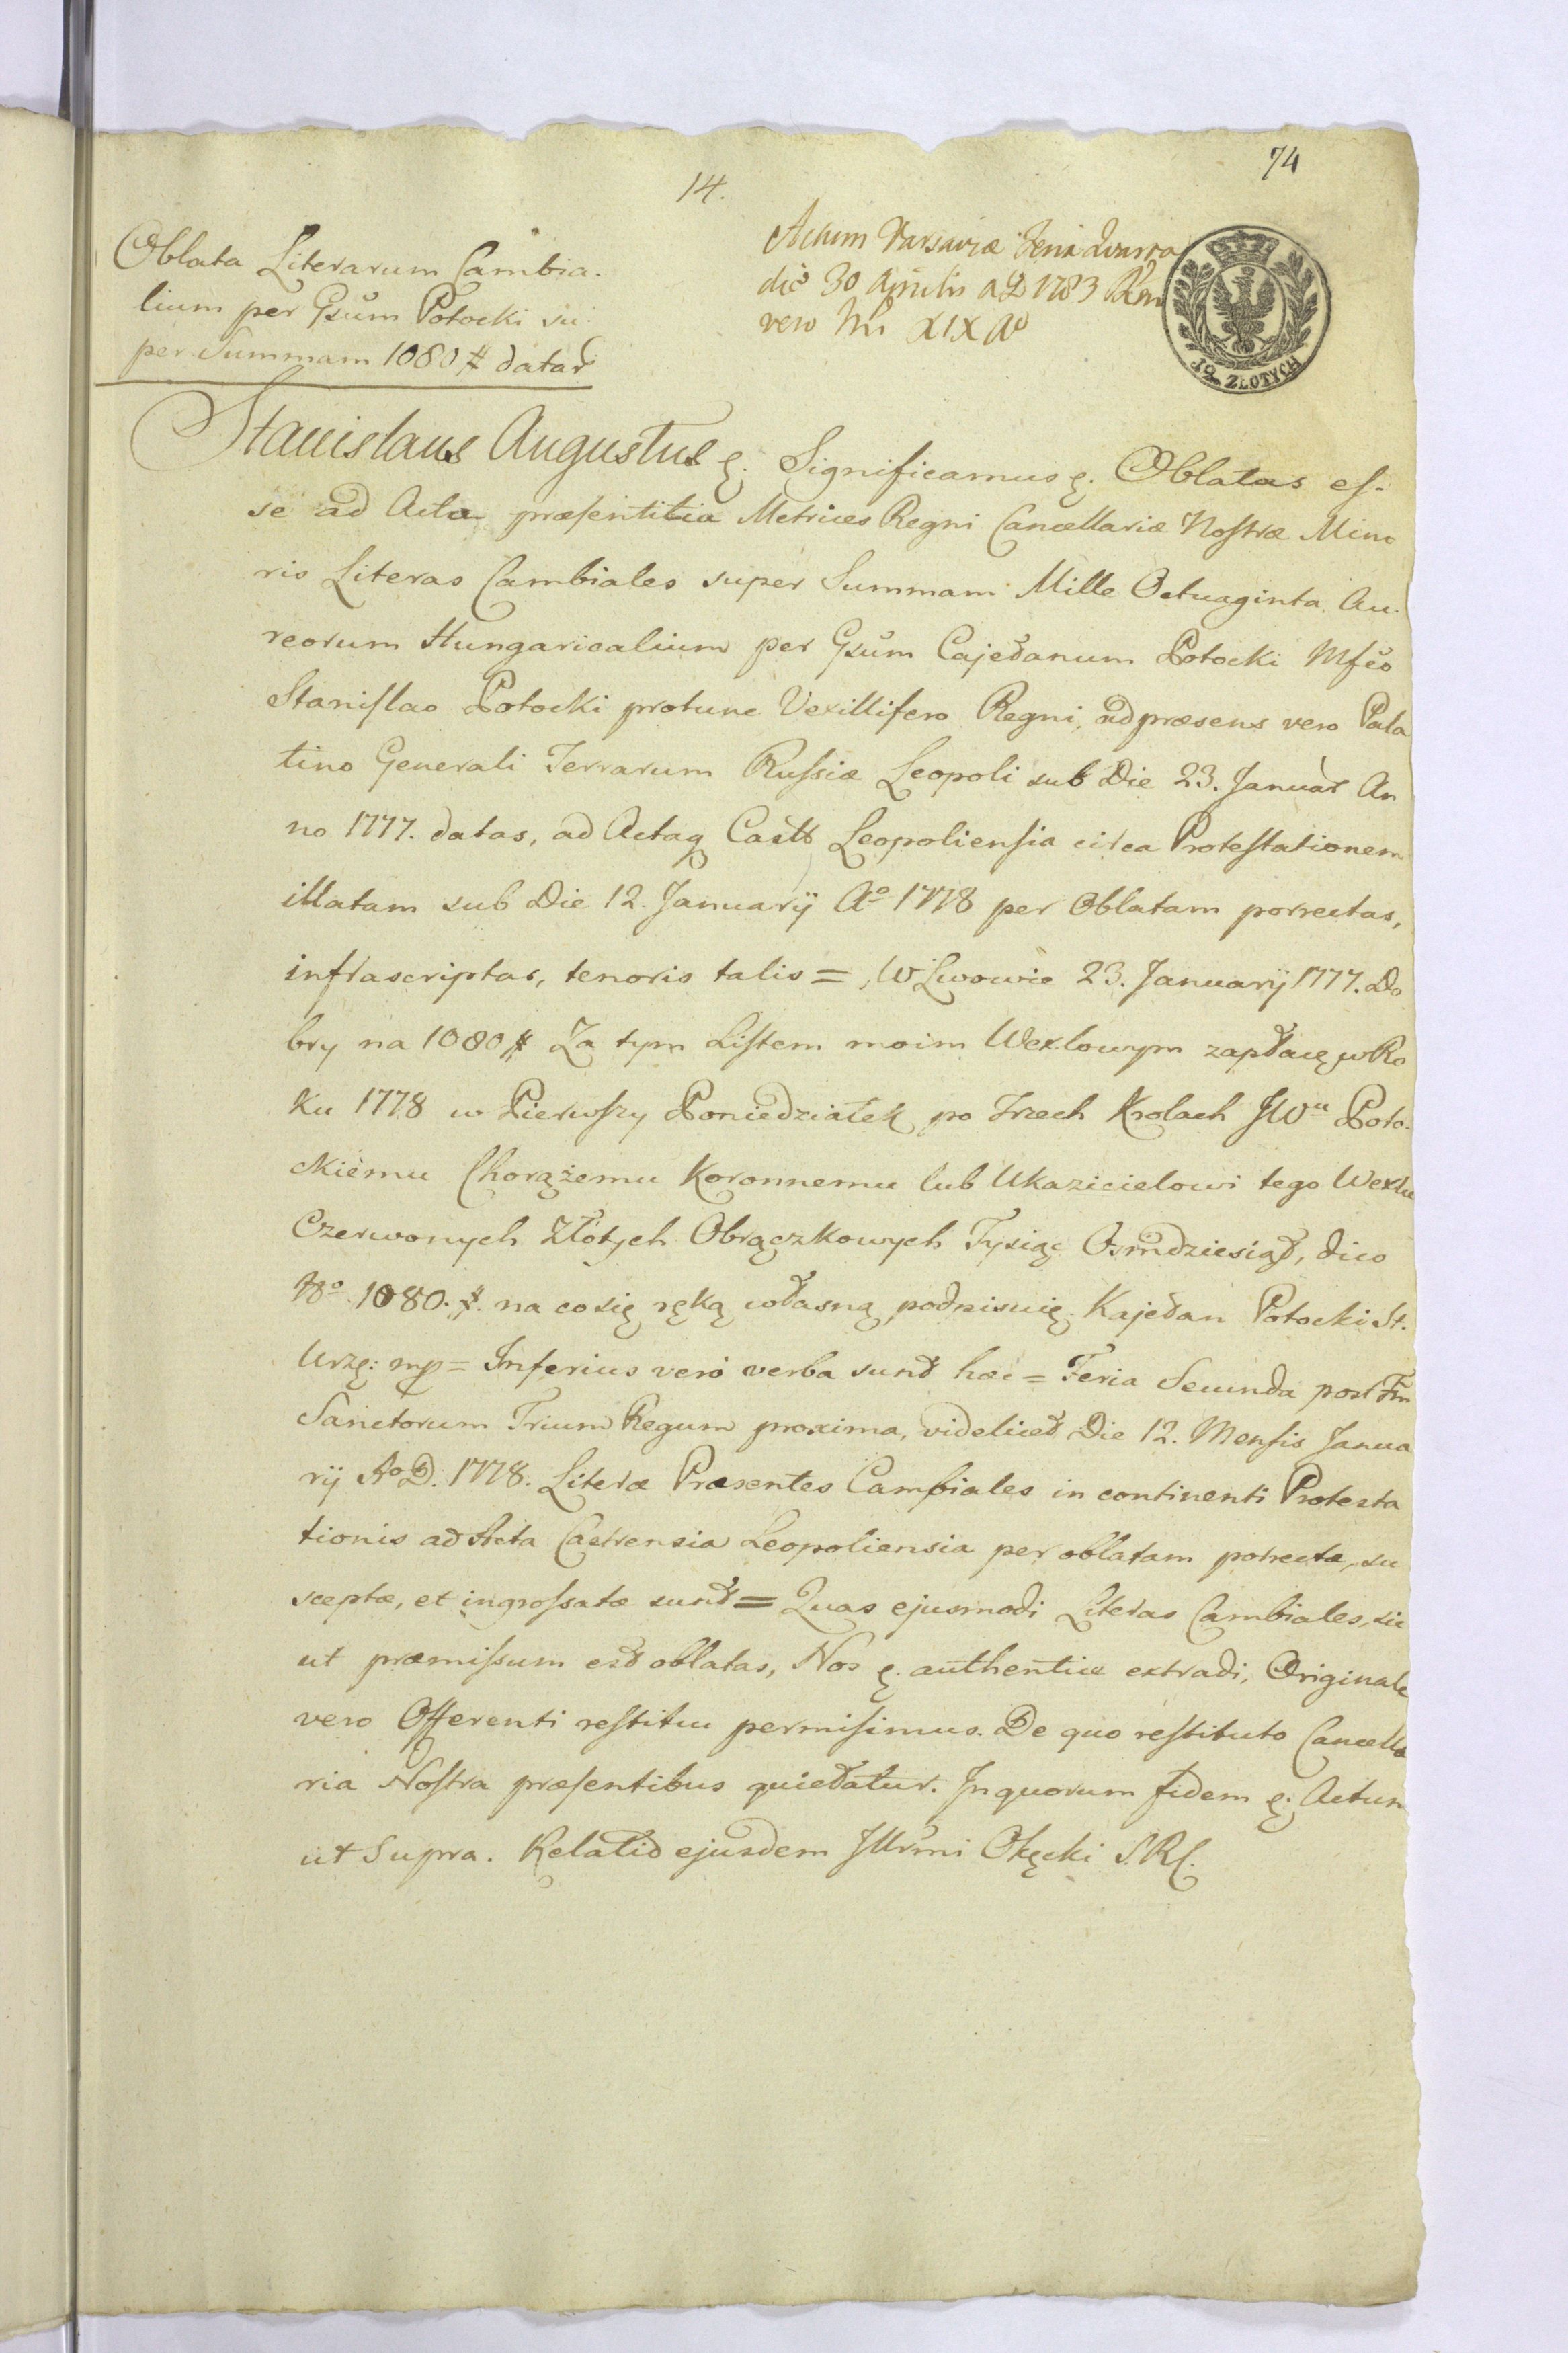 74
14.
Oblata Literarum Cambia.
lium per Gsum Potocki su
per Summam 1080 # datar
Actum Varsaviæ Feria Quarta
die 30 Aprilis AD 1783 Rni
vero Nri XIX Ao
10 ZLOTYCH
Stanislaus Augustus ę. Significamus ę. Oblatas es-
se ad Acta præsentitia Metrices Regni Cancellariæ Nostræ Mino
ris Literas Cambiales super Summam Mille Octuaginta Au.
reorum Hungaricalium per Gsum Cajetanum Potocki Mfco
Stanislao Potocki protunc Vexillifero Regni, ad præsens vero Pala
tino Generali Terrarum Russiæ Leopoli sub Die 23. Januar An
no 1777. datas, ad Actaq Castr Leopoliensia circa Protestationem
illatam sub Die 12. Januarij Aº 1778 per Oblatam porrectas,
infrascriptas, tenoris talis = W Lwowie 23. Januarij 1777. Do
bry na 1080 # Za tym Listem moim Wexlowym zapłacę w Ro
ku 1778 w Pierwszy Poniedziałek po Trzech Krolach JWu Poto-
ckiemu Chorążemu Koronnemu lub Ukazicielowi tego Wexlu
Czerwonych Złotych Obrączkowych Tysiąc Osmdziesiąt, dico
Nº 1080. #. na co się ręką własną podpisuię. Kajetan Potocki St.
Urzę: mp = Inferius vero verba sunt hæc = Feria Secunda post Fm
Sanctorum Trium Regum proxima, videlicet Die 12. Mensis Janua
rij AoD. 1778. Literæ Præsentes Cambiales in continenti Protesta
tionis ad Acta Castrensia Leopoliensia per oblatam porrectæ, su
sceptæ, et ingrossatæ sunt = Quas ejusmodi Literas Cambiales, sic
ut præmissum est oblatas, Nos ę. authentice extradi, Originale
vero Offerenti restitui permisimus. De quo restituto Cancella
ria Nostra præsentibus quietatur. In quorum fidem ę: Actum
ut Supra. Relatio ejusdem Jllrmi Okęcki S.R.